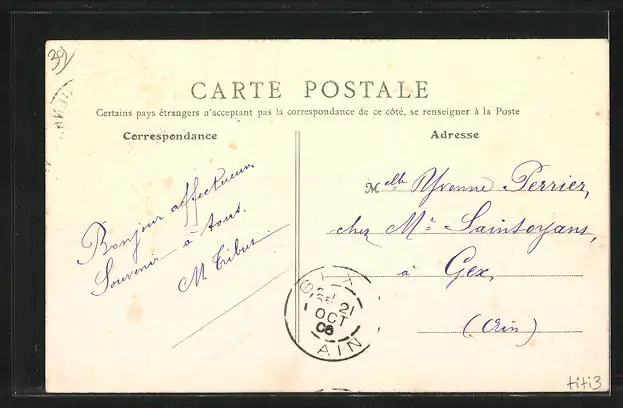 39
CARTE POSTALE
Certains pays étrangers n'acceptant pas la correspondance de ce côté, se renseigner à la Poste
Correspondance
Adresse
Bonjour affectueux,
Souvenir à tous.
M Tribut
Melle Yvonne Perrier,
chez Mr Saintoyans,
à Gex,
(Ain)
GEX
21
OCT
06
AIN
titi3